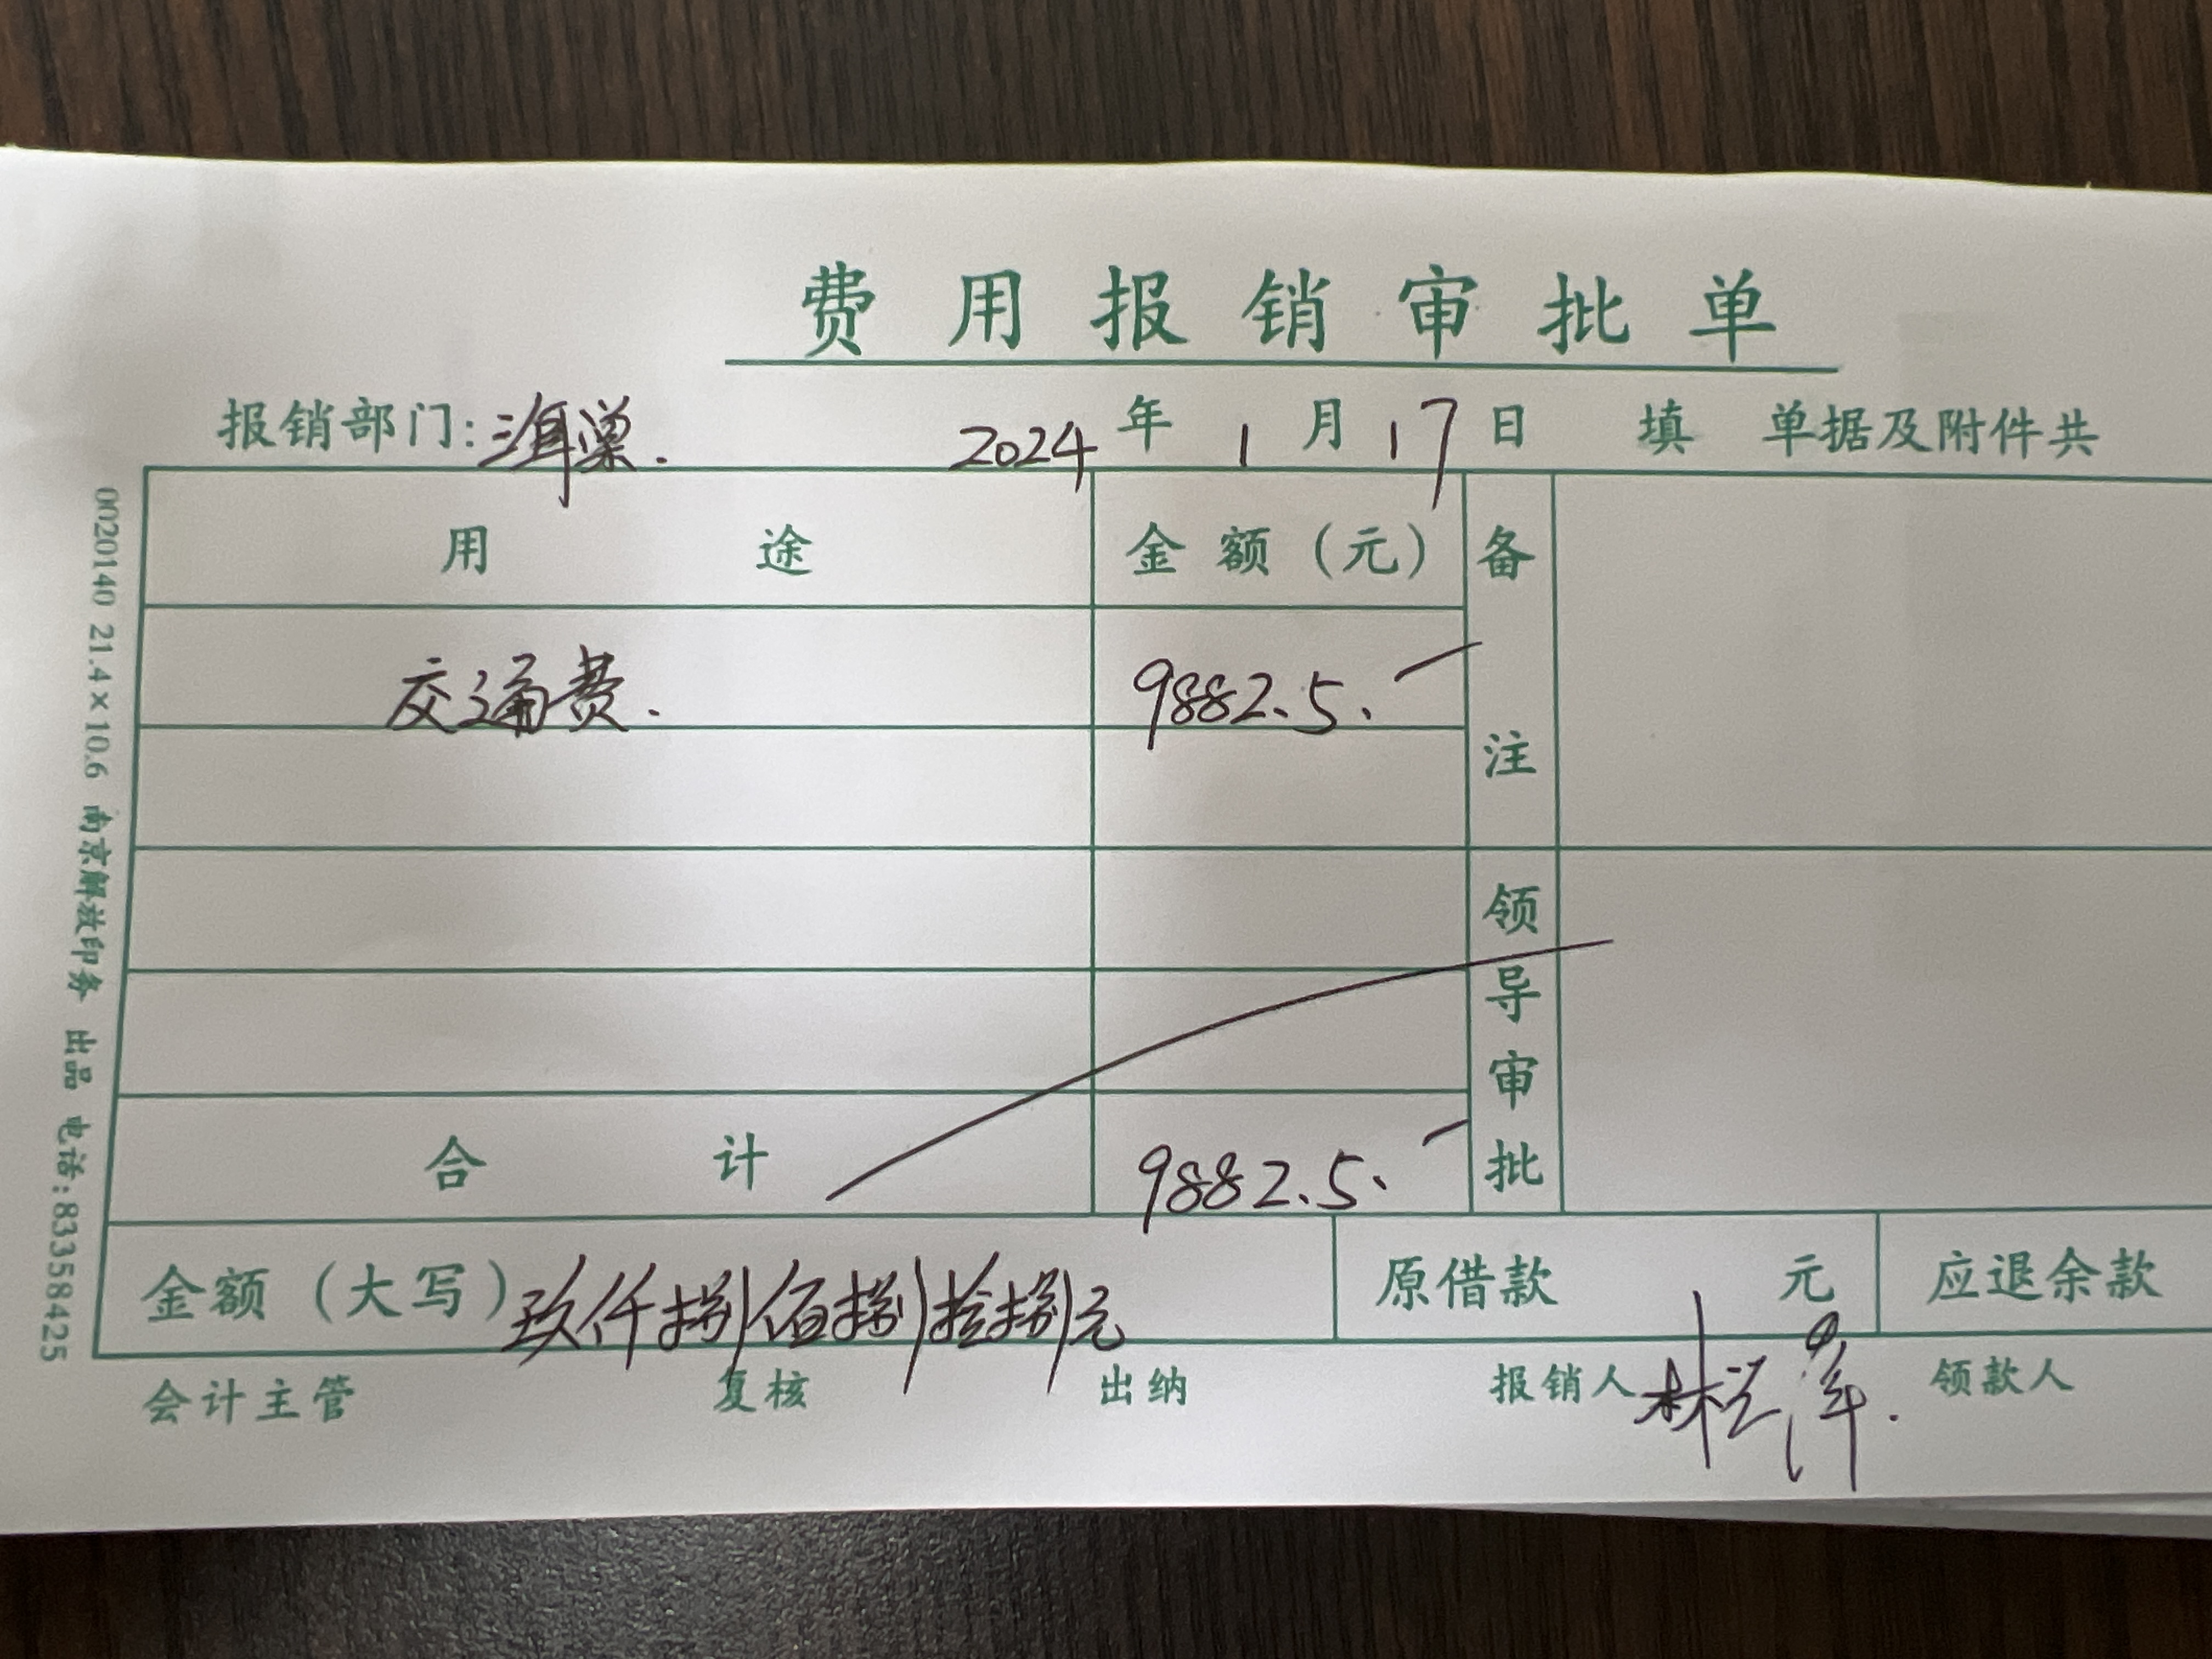 费用报销审批单
报销部门: 2024 年 1 月 17 日 填 单据及附件共
用途 金额（元） 备注
交通费. 9882.5.
领导审批
合计 9882.5.
金额（大写）玖仟捌佰捌拾捌元 原借款 元 应退余款
会计主管 复核 出纳 报销人 林 领款人
0020140 21.4×10.6 南京解放印务 出品 电话:83358425